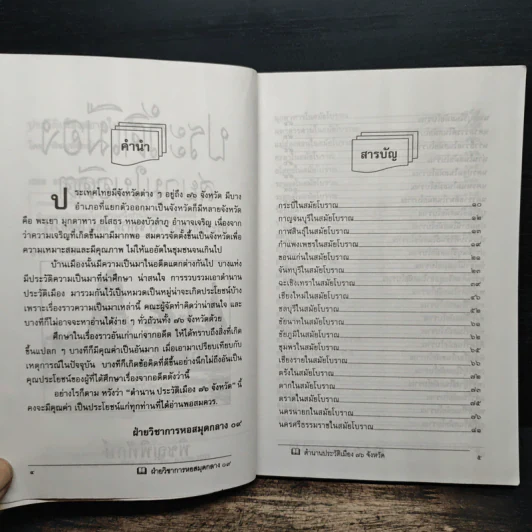 คำนำ
ประเทศไทยมีจังหวัดต่าง ๆ อยู่ถึง ๗๖ จังหวัด มีบาง
อำเภอที่แยกตัวออกมาเป็นจังหวัดก็มีหลายจังหวัด
คือ พะเยา มุกดาหาร ยโสธร หนองบัวลำภู อำนาจเจริญ เนื่องจาก
ว่าความเจริญที่เกิดขึ้นมามีมากพอ สมควรจัดตั้งขึ้นเป็นจังหวัดเพื่อ
ความเหมาะสมและมีคุณภาพ ไม่ให้แออัดในชุมชนจนเกินไป
บ้านเมืองนั้นมีความเป็นมาในอดีตแตกต่างกันไป บางแห่ง
มีประวัติความเป็นมาที่น่าศึกษา น่าสนใจ การรวบรวมเอาตำนาน
ประวัติเมือง มารวมกันไว้เป็นหมวดเป็นหมู่น่าจะเกิดประโยชน์บ้าง
เพราะเรื่องราวความเป็นมาเหล่านี้ คณะผู้จัดทำคิดว่าน่าสนใจ และ
บางทีก็ไม่อาจจะหาอ่านได้ง่าย ๆ ทั่วถ้วนทั้ง ๗๖ จังหวัดด้วย
ศึกษาในเรื่องราวอันเก่าแก่จากอดีต ให้ได้ทราบถึงสิ่งที่เกิด
ขึ้นแปลก ๆ บางทีก็มีคุณค่าเป็นอันมาก เมื่อเอามาเปรียบเทียบกับ
เหตุการณ์ในปัจจุบัน บางทีก็เกิดข้อคิดที่ดีขึ้นอย่างนึกไม่ถึงอันเป็น
คุณประโยชน์ของผู้ที่ได้ศึกษาเรื่องจากอดีตดังว่านี้
อย่างไรก็ตาม หวังว่า "ตำนาน ประวัติเมือง ๗๖ จังหวัด" นี้
คงจะมีคุณค่า เป็นประโยชน์แก่ทุกท่านที่ได้อ่านพอสมควร.
ฝ่ายวิชาการหอสมุดกลาง ๐๙
๔ ฝ่ายวิชาการหอสมุดกลาง ๐๙
สารบัญ
กระบี่ในสมัยโบราณ ๑๐
กาญจนบุรีในสมัยโบราณ ๑๒
กาฬสินธุ์ในสมัยโบราณ ๑๓
กำแพงเพชรในสมัยโบราณ ๑๙
ขอนแก่นในสมัยโบราณ ๒๑
จันทบุรีในสมัยโบราณ ๒๓
ฉะเชิงเทราในสมัยโบราณ ๓๑
เชียงใหม่ในสมัยโบราณ ๔๖
ชลบุรีในสมัยโบราณ ๕๒
ชัยนาทในสมัยโบราณ ๖๑
ชัยภูมิในสมัยโบราณ ๖๒
ชุมพรในสมัยโบราณ ๖๕
เชียงรายในสมัยโบราณ ๖๘
ตรังในสมัยโบราณ ๗๒
ตากในสมัยโบราณ ๗๓
ตราดในสมัยโบราณ ๗๕
นครนายกในสมัยโบราณ ๗๖
นครศรีธรรมราชในสมัยโบราณ ๘๑
ตำนานประวัติเมือง ๗๖ จังหวัด ๕